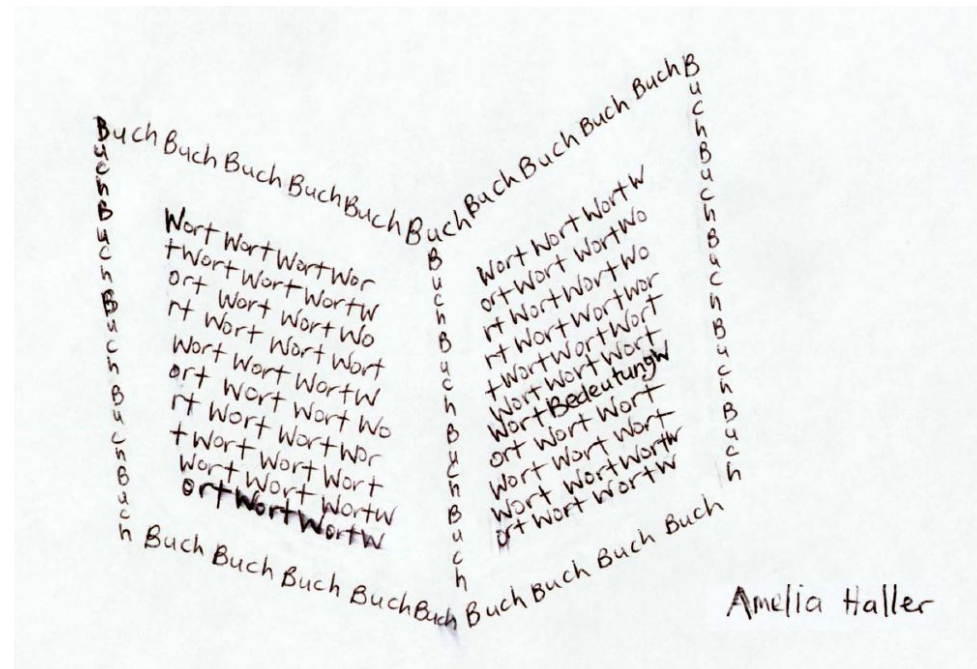 Buch Buch Buch BuchBuch BuchBuch Buch Buch BuchB
BuchBuchBuchBuchBuch
Wort Wort Wort Wor
t Wort Wort Wort W
ort Wort Wort Wo
rt Wort Wort Wort
Wort Wort Wort W
ort Wort Wort Wo
rt Wort Wort Wor
t Wort Wort Wort
Wort Wort Wort W
ort Wort Wort W
BuchBuchBuchBuch
Wort Wort Wort W
ort Wort Wort Wo
rt Wort Wort Wo
rt Wort Wort Wor
t Wort Wort Wort
Wort Wort Wort
Wort Bedeutung W
ort Wort Wort
Wort Wort Wort
Wort Wort Wort W
ort Wort Wort W
BuchBuchBuchBuchBuch
Buch Buch Buch BuchBuch Buch Buch Buch Buch
Amelia Haller